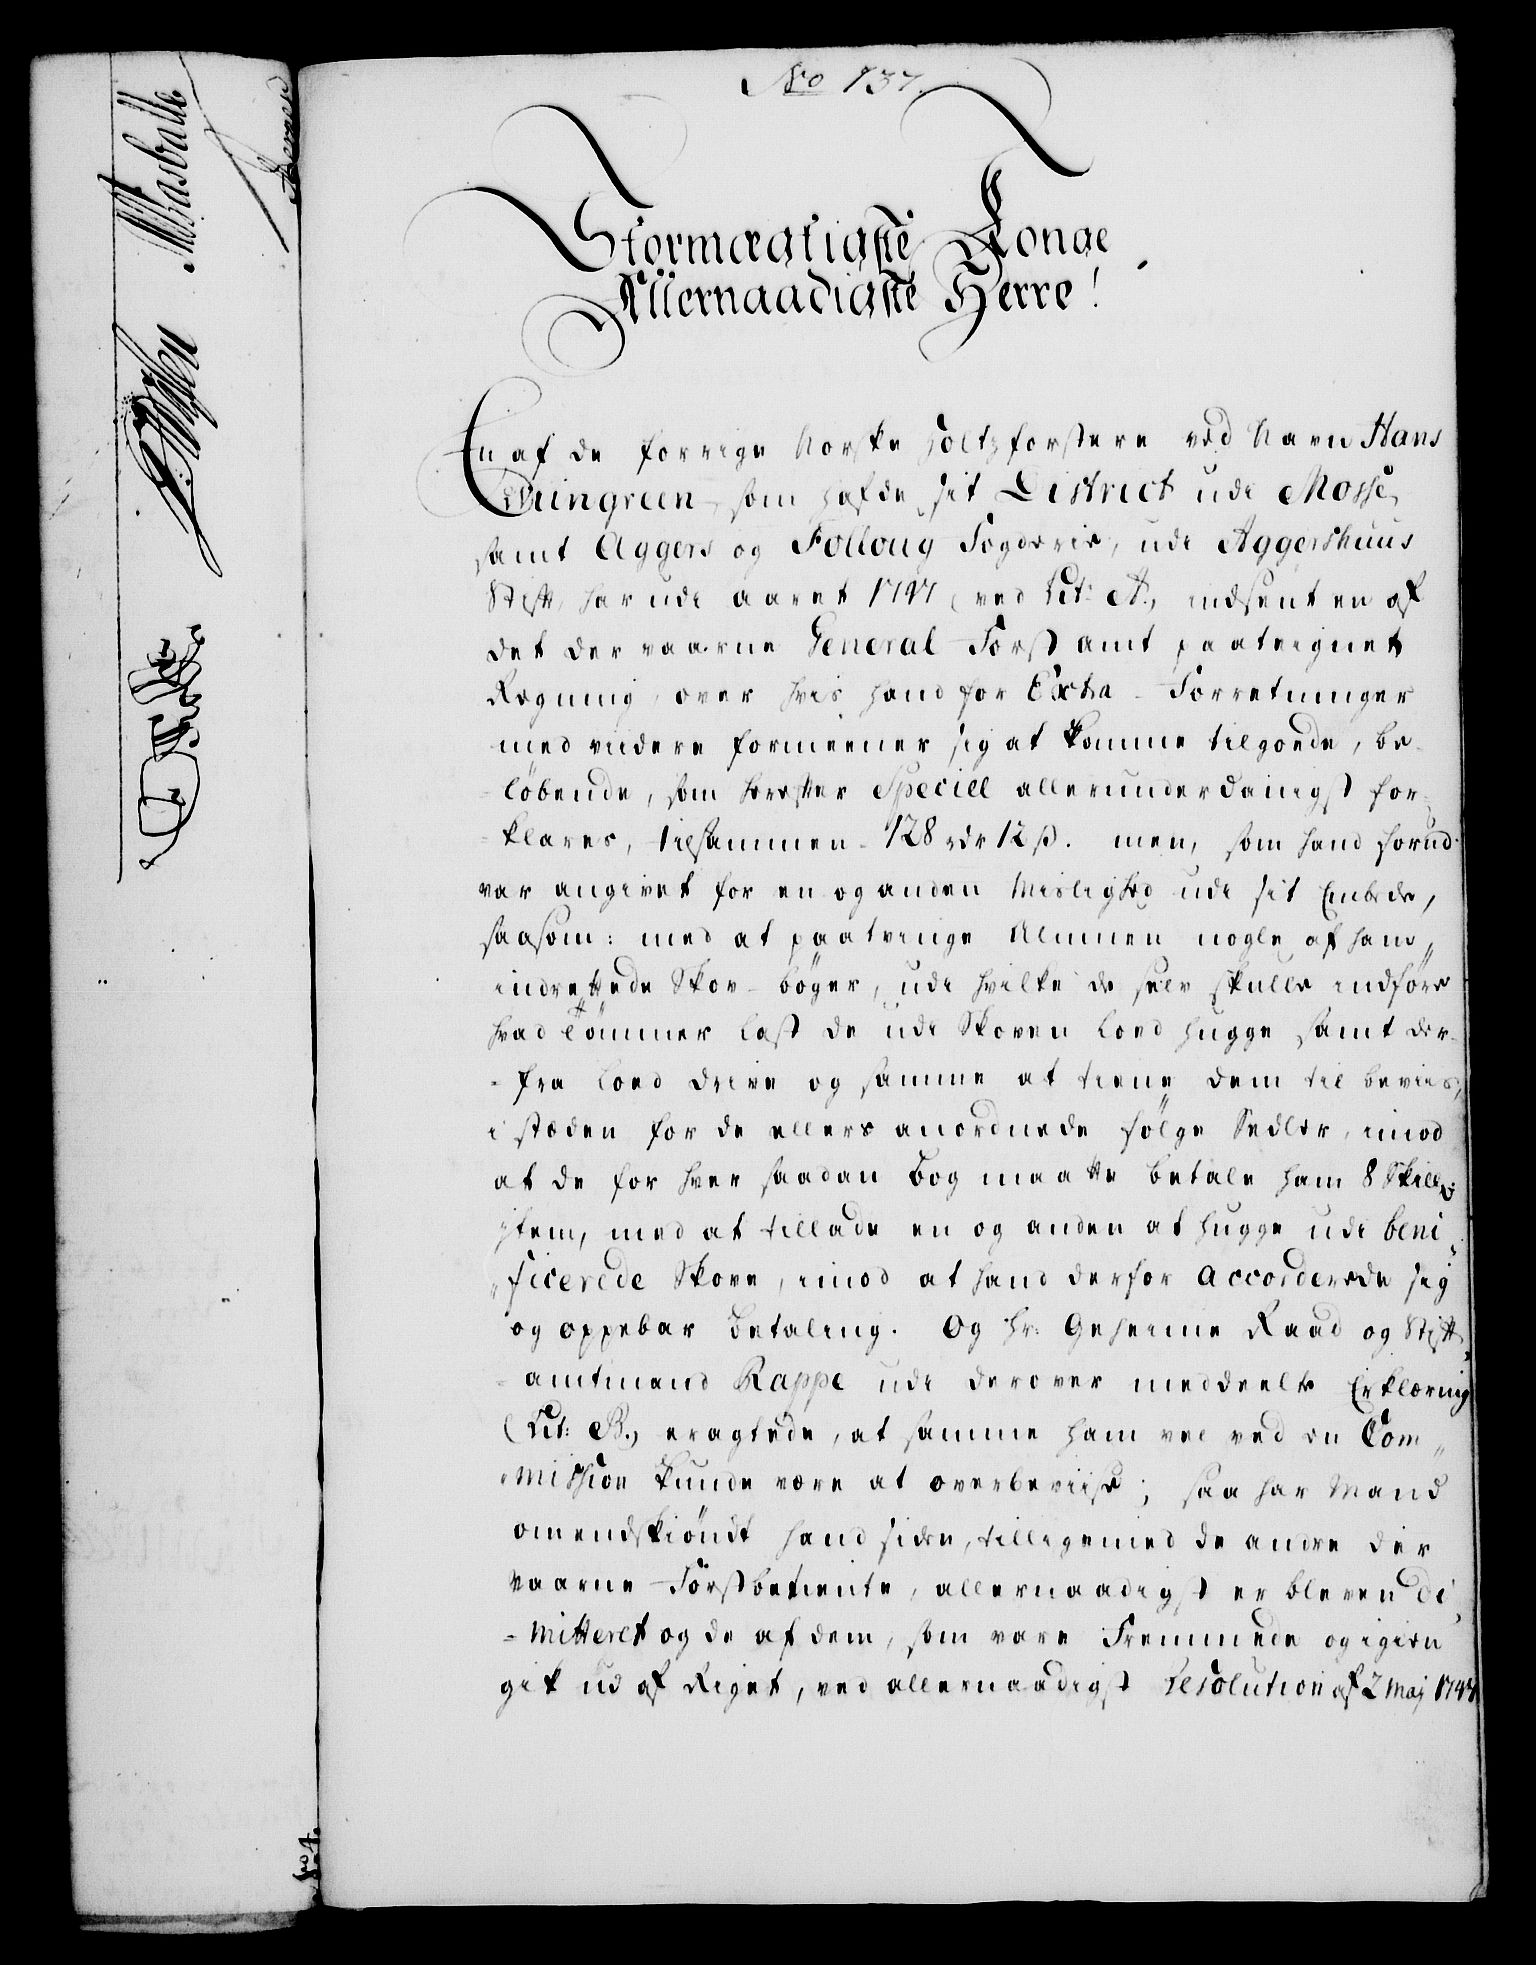 No 137.
Stormægtigste Konge
Allernaadigste Herre!
En af de forrige Norske Holtzforstere ved Navn Hans
som hafde sit District udi Mosse,
samt Aggers og Folloug Fogderie, udi Aggershuus
Stift, har udi aaret 1747, ved Lit: A., indsent en af
det der vaarne General-Forst amt paateignet
Regning, over hvis hand for Extra-Forretninger
med viidere formeener sig at komme tilgoede, be-
løbende, som herefter Speciell allerunderdanigst for-
klares, tilsammen 128 rdr 12 ß. men, som hand forud
var angivet for en og anden Mislighed udi sit Embede,
saasom: med at paatvinge Almuen nogle af ham
indrettede Skov-bøger, udi hvilke de selv skulle indføre
hvad Tømmer last de udi Skoven loed hugge samt der-
-fra loed drive og samme at tiene dem til beviis,
i stæden for de ellers anordnede følge Sedler, imod
at de for hver saadan bog maatte betale ham 8 Skill:
Item, med at tillade en og anden at hugge udi beni-
-ficerede Skove, imod at hand derfor accorderede sig
og oppebar betaling. Og Hr: Geheime Raad og Stift-
amtmand Rappe udi derover meddeelte Erklæring
(Lit: B., eragtede, at samme ham vel ved en Com-
-mission kunde være at overbeviise; saa har Mand
omendskiøndt hand siden, tilligemed de andre der
vaarne Forstbetiente, allernaadigst er bleven di-
-mitteret og de af dem, som vare Fremmede og igien
gik ud af Riget, ved allernaadigst Resolution af 2 Maj